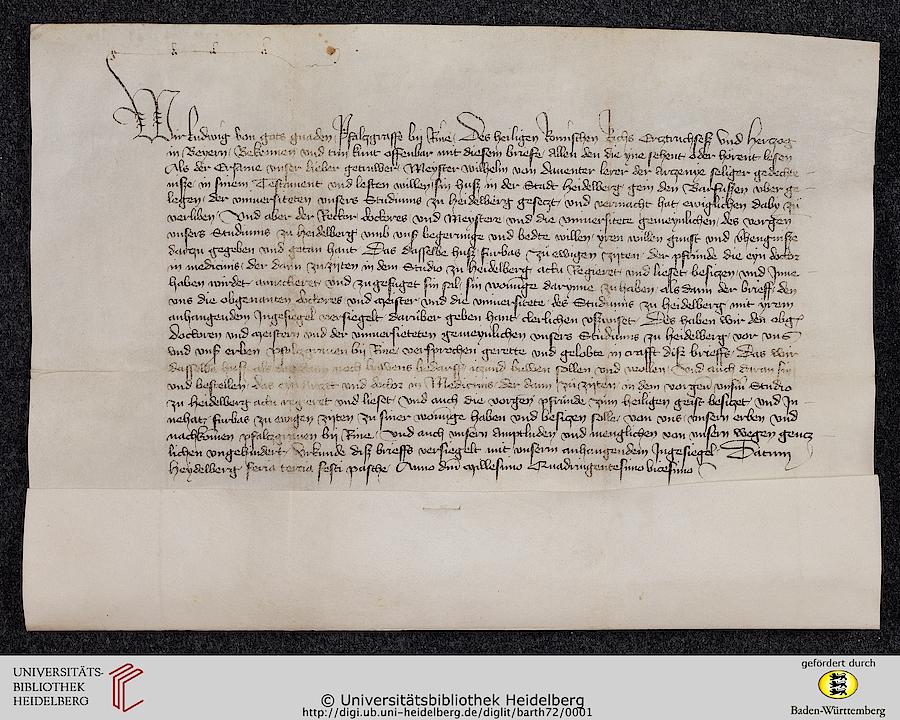 Wir Ludwig von gots gnaden Pfalzgraffe by Rine Des heiligen Romischen Richs Erztruchseß und Herzog
in Beyern Bekennen und tun kunt offenbar mit diesem briefe allen den die yne sehent oder hörent lesen
Als der Ersame unser lieber getruwer Meyster wilhelm von dauenter lerer der Arzenye seliger gedecht
niße in sinem Testament und lesten willen sin huß in der Stadt Heidelberg gein den Barfußen uber ge
legen der universiteten unsers Studiums zu Heidelberg gesetzt und vermacht hat ewiglichen daby zu
verliben Und aber der Rector doctores und Meystere und die universitete gemeynlichen des vorgen
unsers Studiums zu Heidelberg umb unß begerunge und bedte willen yren willen gunst und verhengniße
darzu gegeben und getan hant Das dasselbe huß furbas zu ewigen zijten der pfrunde die eyn doctor
in medicinis der dann zu zijten in dem Studio zu Heidelberg actu Regieret und lieset besizen und Inne
haben wirdet und zugefuget sin sal sin wonunge darynne zu haben als dann der brieff den
uns die obgenanten doctores und Meister und die universitete des Studiums zu Heidelberg mit yrem
anhangendem Ingesiegel versiegelt daruber geben hant clerlichen ußwiset Des haben wir den obgen
doctoren und Meistern und der universiteten gemeynlichen unsers Studiums zu Heidelberg vor uns
und unß erben pfalzgraven by Rine versprochen gerette und gelobte in crafft diß brieffs Das wir
dasselbe huß noch buwens bedarff iczund buwen sollen und wollen Und auch daran sin
und bestellen das eyn und doctor in Medicinis der dann zu zijten in dem vorgen unserm Studio
zu Heidelberg actu regieret und lieset und auch die vorgen pfrunde zum heiligen geist besizet und In
nehat furbas zu ewigen zijten zu siner wonunge haben und besizen solle von uns unsern erben und
nachkomen pfalzgraven by Rine und auch unsern amptluden und menglichen von unsern wegen gencz
lichen ungehindert Urkunde diß brieffs versiegelt mit unserm anhangendem Ingesiegel Datum
Heydelberg feria tercia festi pasche Anno dni Millesimo Quadringentesimo vicesimo
UNIVERSITÄTS-
BIBLIOTHEK
HEIDELBERG
© Universitätsbibliothek Heidelberg
http://digi.ub.uni-heidelberg.de/diglit/barth72/0001
gefördert durch
Baden-Württemberg